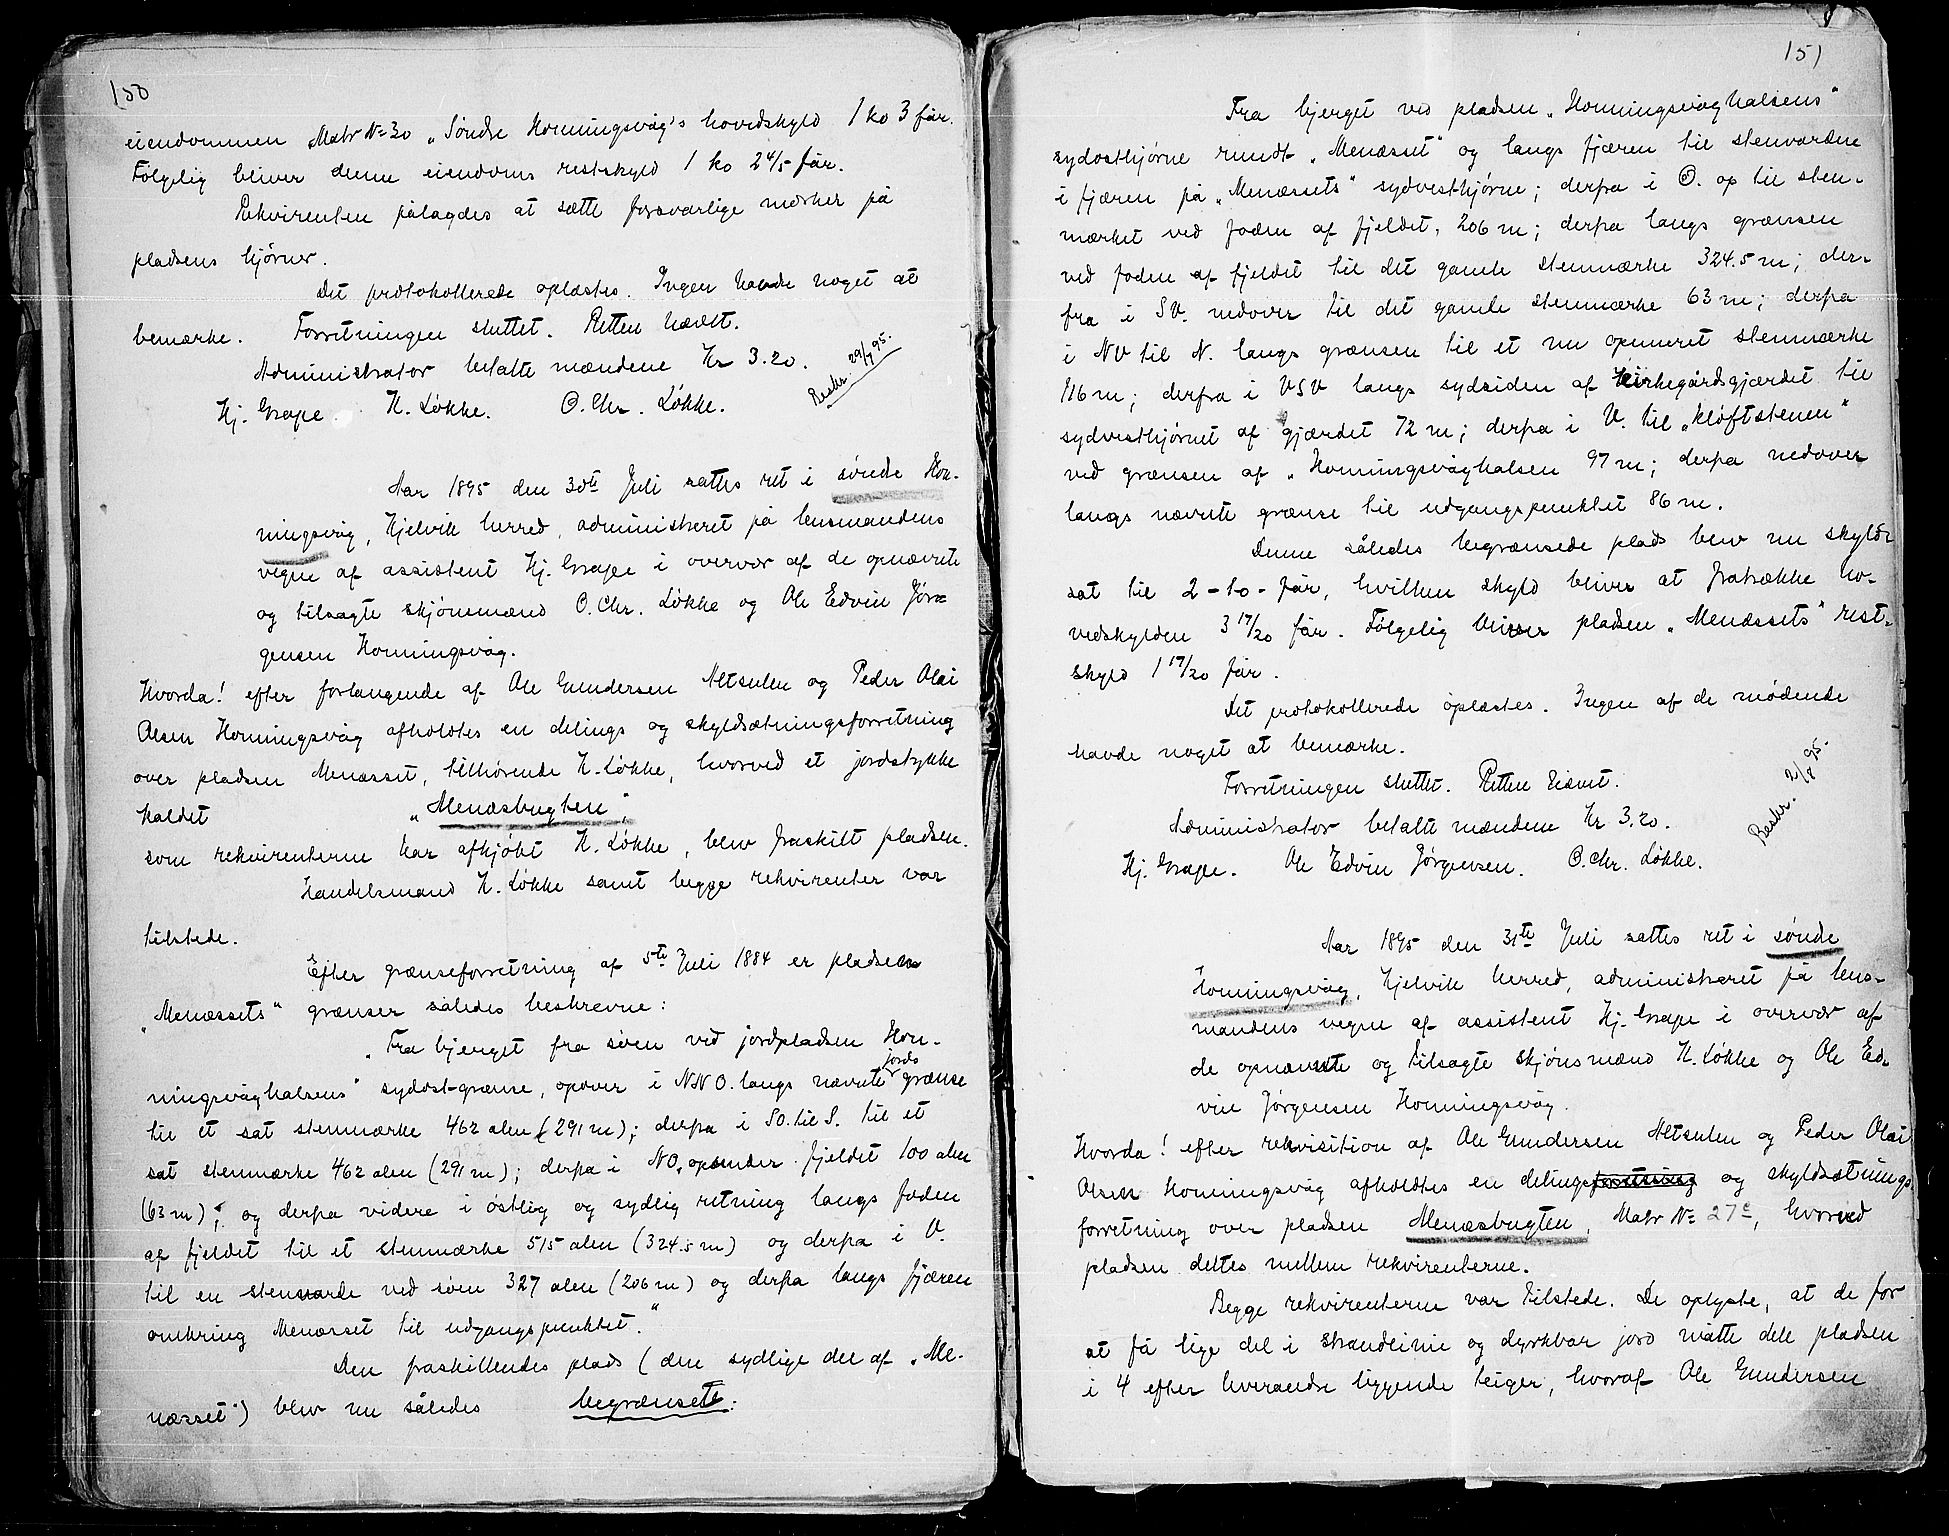 150
eiendommen Matr No 30 „Søndre Honningsvåg's hovedskyld 1 ko 3 får.
Følgelig bliver denne eiendoms restskyld 1 ko 2 4/5 får.
Rekvirenten pålagdes at sætte forsvarlige mærker på
pladsens hjørner.
Det protokollerede oplæstes. Ingen havde noget at
bemærke. Forretningen sluttet. Retten hævet.
Administrator betalte mændene Kr 3.20.
Beskr. 29/7 95.
Hj. Grape. K. Løkke. O. Chr. Løkke.
Aar 1895 den 30te Juli sattes ret i søndre Hon-
ningsvåg, Kjelvik herred, administreret på lensmandens
vegne af assistent Hj. Grape i overvær af de opnævnte
og tilsagte skjønsmænd O. Chr. Løkke og Ole Edvin Jør-
gensen Honningsvåg.
Hvorda! efter forlangende af Ole Gundersen Altsulen og Peder Olai
Olsen Honningsvåg afholdtes en delings og skyldsætningsforretning
over pladsen Menæsset, tilhørende K. Løkke, hvorved et jordstykke
kaldet „Menæsbugten“,
som rekvirenterne har afkjøbt K. Løkke, blev fraskilt pladsen.
Handelsmand K. Løkke samt begge rekvirenter var
tilstede.
Efter grænseforretning af 5te Juli 1884 er pladsen
„Menæssets“ grænser således beskrevne:
„Fra bjerget fra søen ved jordpladsen Hon-
ningsvåghalsens“ sydost-grænse, opover i NNO. langs nævnte jords grænse
til et sat stenmærke 462 alen (291 m); derpå i SO. til S. til et
sat stenmærke 462 alen (291 m); derpå i NO. opunder fjeldet 100 alen
(63 m); og derpå videre i østlig og sydlig retning langs foden
af fjeldet til et stenmærke 515 alen (324.5 m) og derpå i V.
til en stenvarde ved søen 327 alen (206 m) og derpå langs fjæren
omkring Menæsset til udgangspunktet.“
Den fraskillendes plads (den sydlige del af „Me-
næsset“) blev nu således begrænset:
151
Fra bjerget ved pladsen „Honningsvåghalsens“
sydosthjørne rundt „Menæsset“ og langs fjæren til stenvarden
i fjæren på „Menæssets“ sydvesthjørne; derpå i O. op til sten-
mærket ved foden af fjeldet, 206 m; derpå langs grænsen
ved foden af fjeldet til det gamle stenmærke 324.5 m; der-
fra i SV. nedover til det gamle stenmærke 63 m; derpå
i NV til N. langs grænsen til et nu opmuret stenmærke
116 m; derpå i VSV langs sydsiden af kirkegårdsgjærdet til
sydvesthjørnet af gjærdet 72 m; derpå i V. til „kløftstenen“
ved grænsen af „Honningsvåghalsen 97 m; derpå nedover
langs nævnte grænse til udgangspunktet 86 m.
Denne således begrænsede plads blev nu skyld-
sat til 2 - to - får, hvilken skyld bliver at fratrække ho-
vedskylden 3 17/20 får. Følgelig bliver pladsen „Menæssets“ rest-
skyld 1 17/20 får.
Det protokollerede oplæstes. Ingen af de mødende
havde noget at bemærke.
Forretningen sluttet. Retten hævet.
Administrator betalte mændene Kr 3.20.
Beskr. 2/8 95.
Hj. Grape. Ole Edvin Jørgensen. O. Chr. Løkke.
Aar 1895 den 31te Juli sattes ret i søndre
Honningsvåg, Kjelvik herred, administreret på lens-
mandens vegne af assistent Hj. Grape i overvær af
de opnævnte og tilsagte skjønsmænd K. Løkke og Ole Ed-
vin Jørgensen Honningsvåg.
Hvorda! efter rekvisition af Ole Gundersen Altsulen og Peder Olai
Olsen Honningsvåg afholdtes en delingsforretning og skyldsætnings-
forretning over pladsen Menæsbugten, Matr No 27c, hvorved
pladsen deltes mellem rekvirenterne.
Begge rekvirenterne var tilstede. De oplyste, at de for
at få lige del i strandlinie og dyrkbar jord måtte dele pladsen
i 4 efter hverandre liggende teiger, hvoraf Ole Gundersen